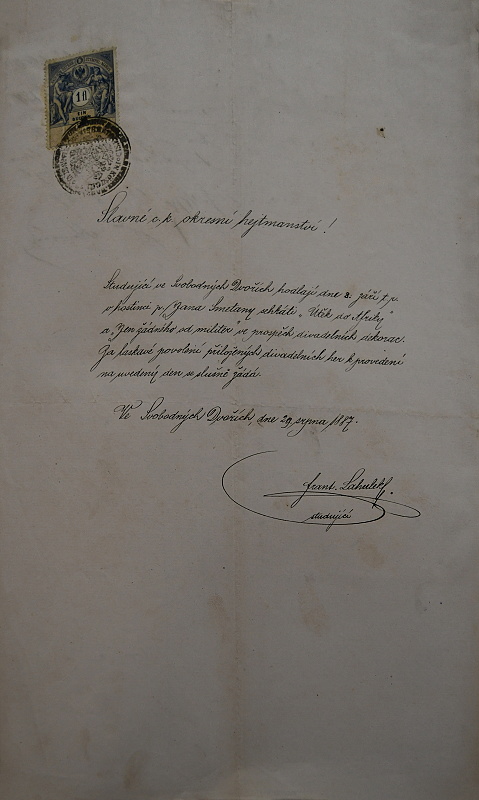 1
Slavné c. k. okresní hejtmanství!
Studující ve Svobodných Dvořích hodlají dne 8. září t. r.
v hostinci p. Jana Smetany sehráti „Útěk do Afriky"
a „Jen žádného od militer" ve prospěch divadelních dekorac.
Za laskavé povolení přiložených divadelních her k provedení
na uvedený den se slušně žádá.
Ve Svobodných Dvořích, dne 29. srpna 1887.
Frant.
studující